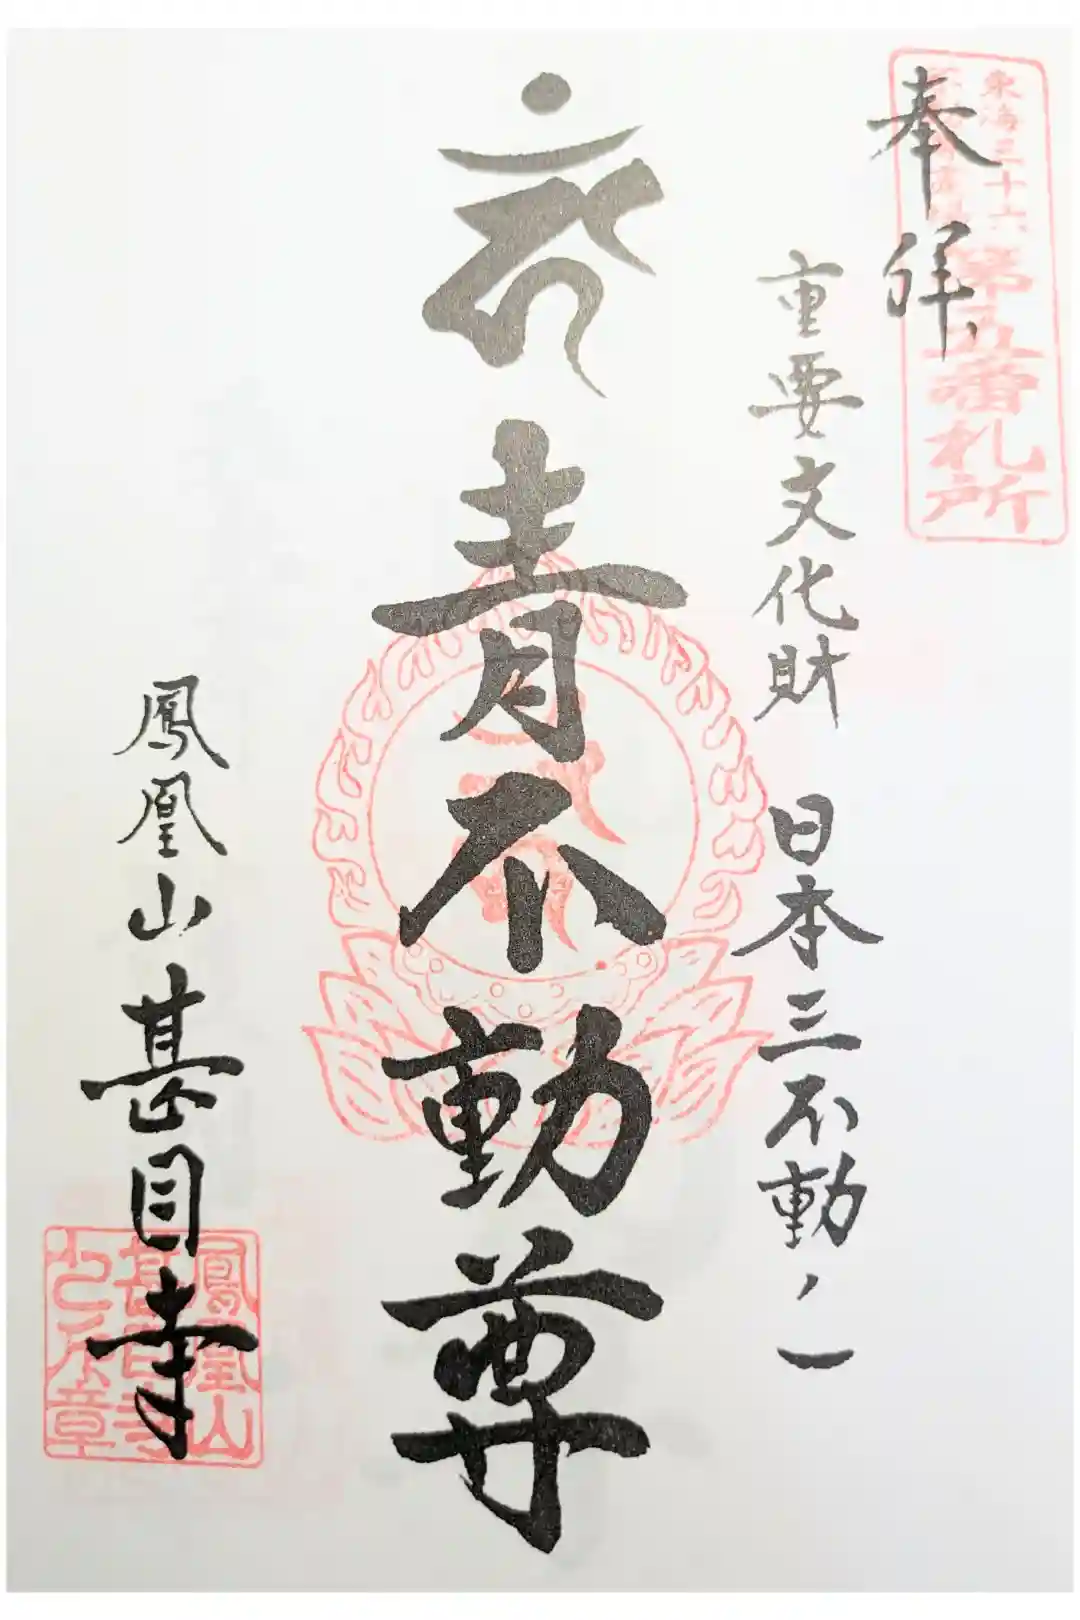 奉拝
東海三十六
不動尊霊場
第五番札所
重要文化財 日本三不動ノ一
青不動尊
鳳凰山甚目寺
鳳凰山
甚目寺
之印章